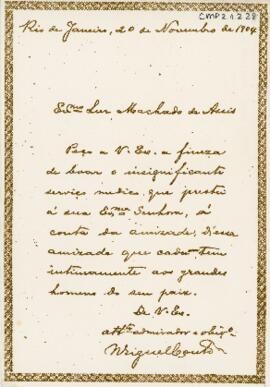 CMP 2.1.2.28
Rio de Janeiro, 20 de Novembro de 1904
Exmo Snr Machado de Assis
Peço a V. Ex. a fineza
de levar o insignificante
serviço medico que prestei
á sua Exma Senhora, á
conta da amizade, d'essa
amizade que cada um tem
intimamente aos grandes
homens do seu paiz.
De V. Ex.
atto admirador e obrigo
Miguel Couto